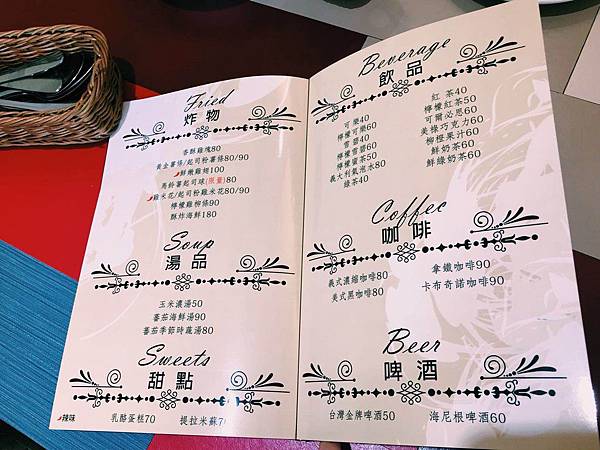 Fried
炸物
香酥雞塊80
黃金薯條/起司粉薯條80/90
鮮嫩雞翅100
馬鈴薯起司球(限量)80
雞米花/起司粉雞米花80/90
檸檬雞柳條90
酥炸海鮮180
Soup
湯品
玉米濃湯50
蕃茄海鮮湯90
蕃茄季節時蔬湯80
Sweets
甜點
辣味
乳酪蛋糕70 提拉米蘇7
Beverage
飲品
可樂40
檸檬可樂60
雪碧40
檸檬雪碧60
檸檬蜜茶50
義大利氣泡水80
綠茶40
紅 茶40
檸檬紅茶50
可爾必思60
美祿巧克力60
柳橙果汁60
鮮奶茶60
鮮綠奶茶60
Coffee
咖啡
義式濃縮咖啡80
美式黑咖啡80
拿鐵咖啡90
卡布奇諾咖啡90
Beer
啤酒
台灣金牌啤酒50 海尼根啤酒60